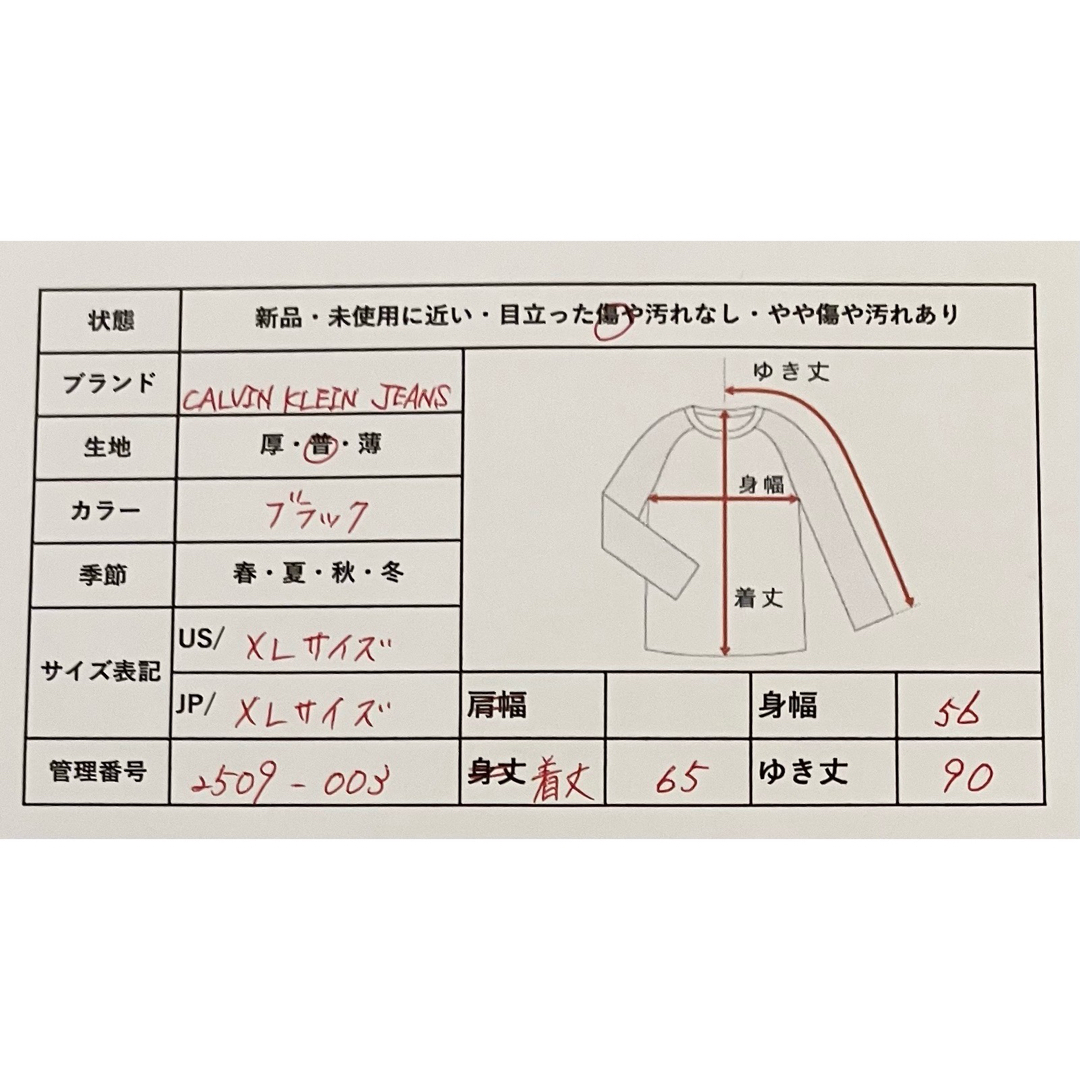 状態 新品・未使用に近い・目立った傷や汚れなし・やや傷や汚れあり
ブランド CALVIN KLEIN JEANS
生地 厚・普・薄
カラー ブラック
季節 春・夏・秋・冬
サイズ表記
US/ XLサイズ
JP/ XLサイズ
管理番号 2509-003
ゆき丈
身幅
着丈
肩幅 身幅 56
身丈 着丈 65 ゆき丈 90